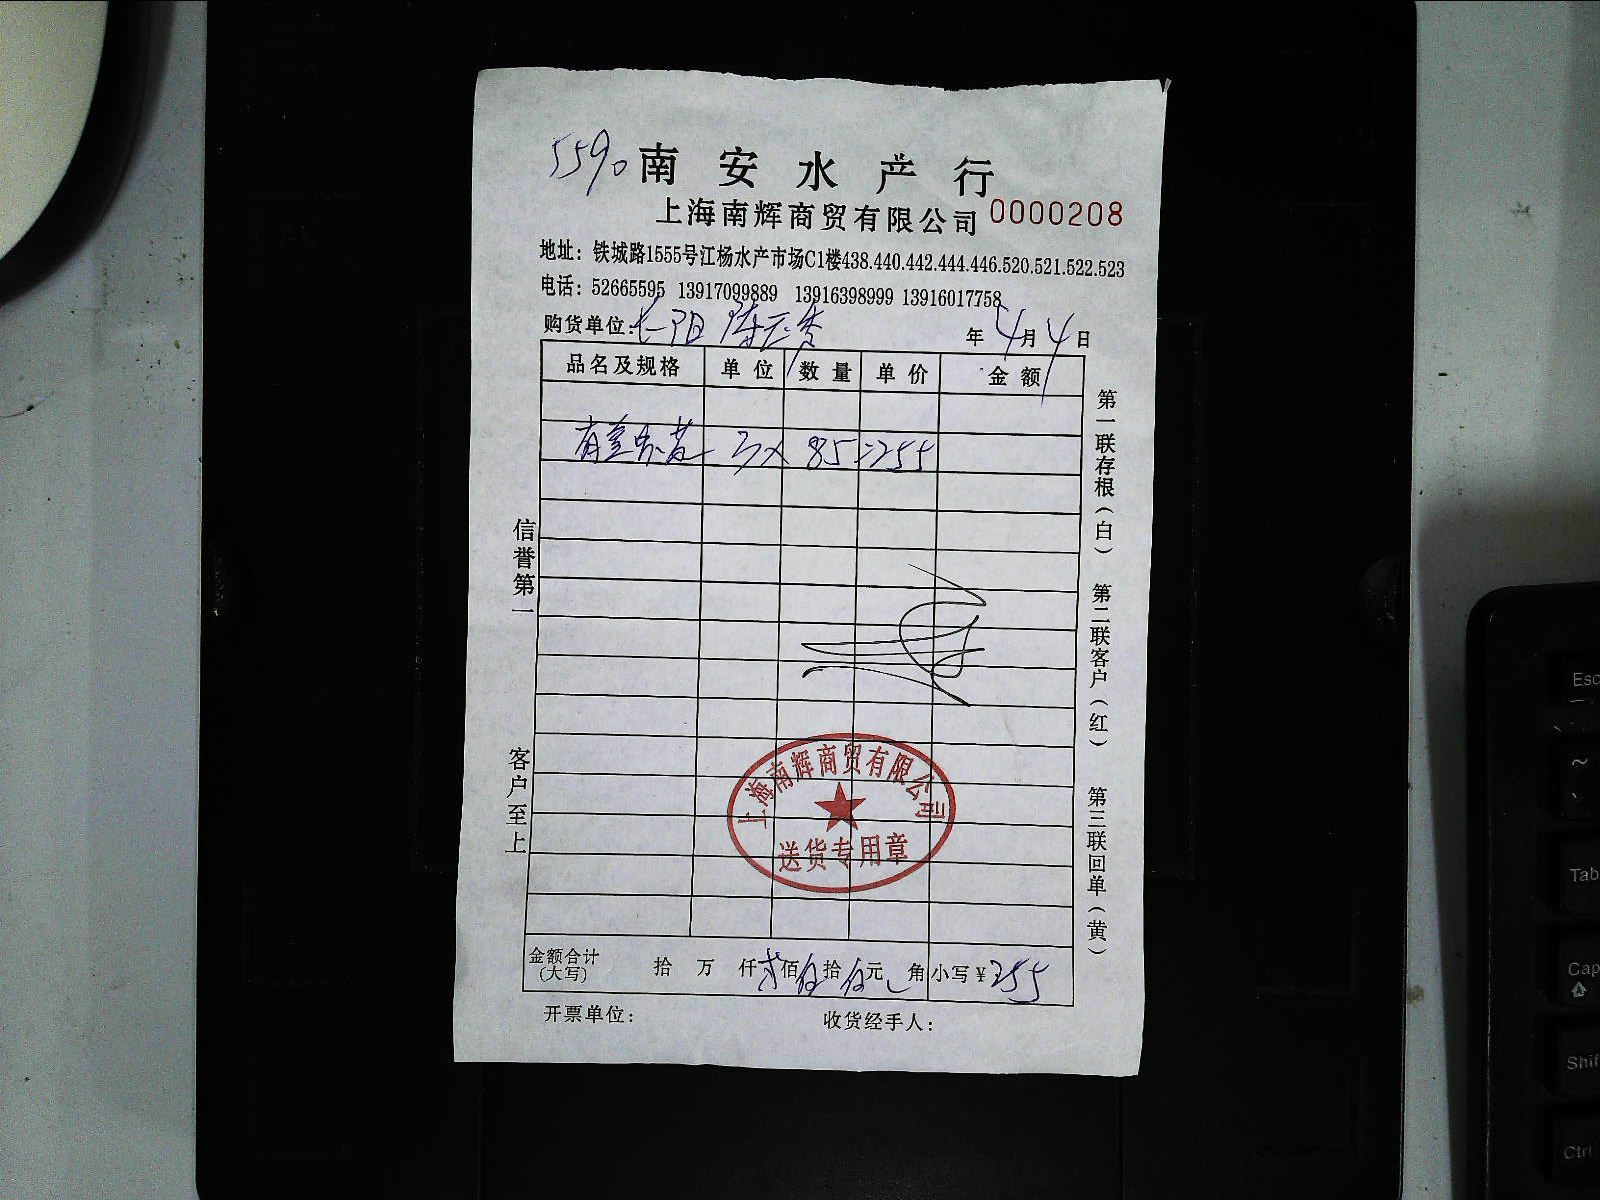 5590
南安水产行
上海南辉商贸有限公司 0000208
地址：铁城路1555号江杨水产市场C1楼438.440.442.444.446.520.521.522.523
电话：52665595 13917099889 13916398999 13916017758
购货单位： 年 4 月 4 日
品名及规格 单位 数量 单价 金额
3× 85=255
信誉第一
客户至上
第一联存根（白） 第二联客户（红） 第三联回单（黄）
上海南辉商贸有限公司
送货专用章
金额合计（大写） 拾 万 仟 贰佰伍拾伍元 角 小写￥255
开票单位： 收货经手人：
Esc
~
Tab
Cap
Shif
Ctrl